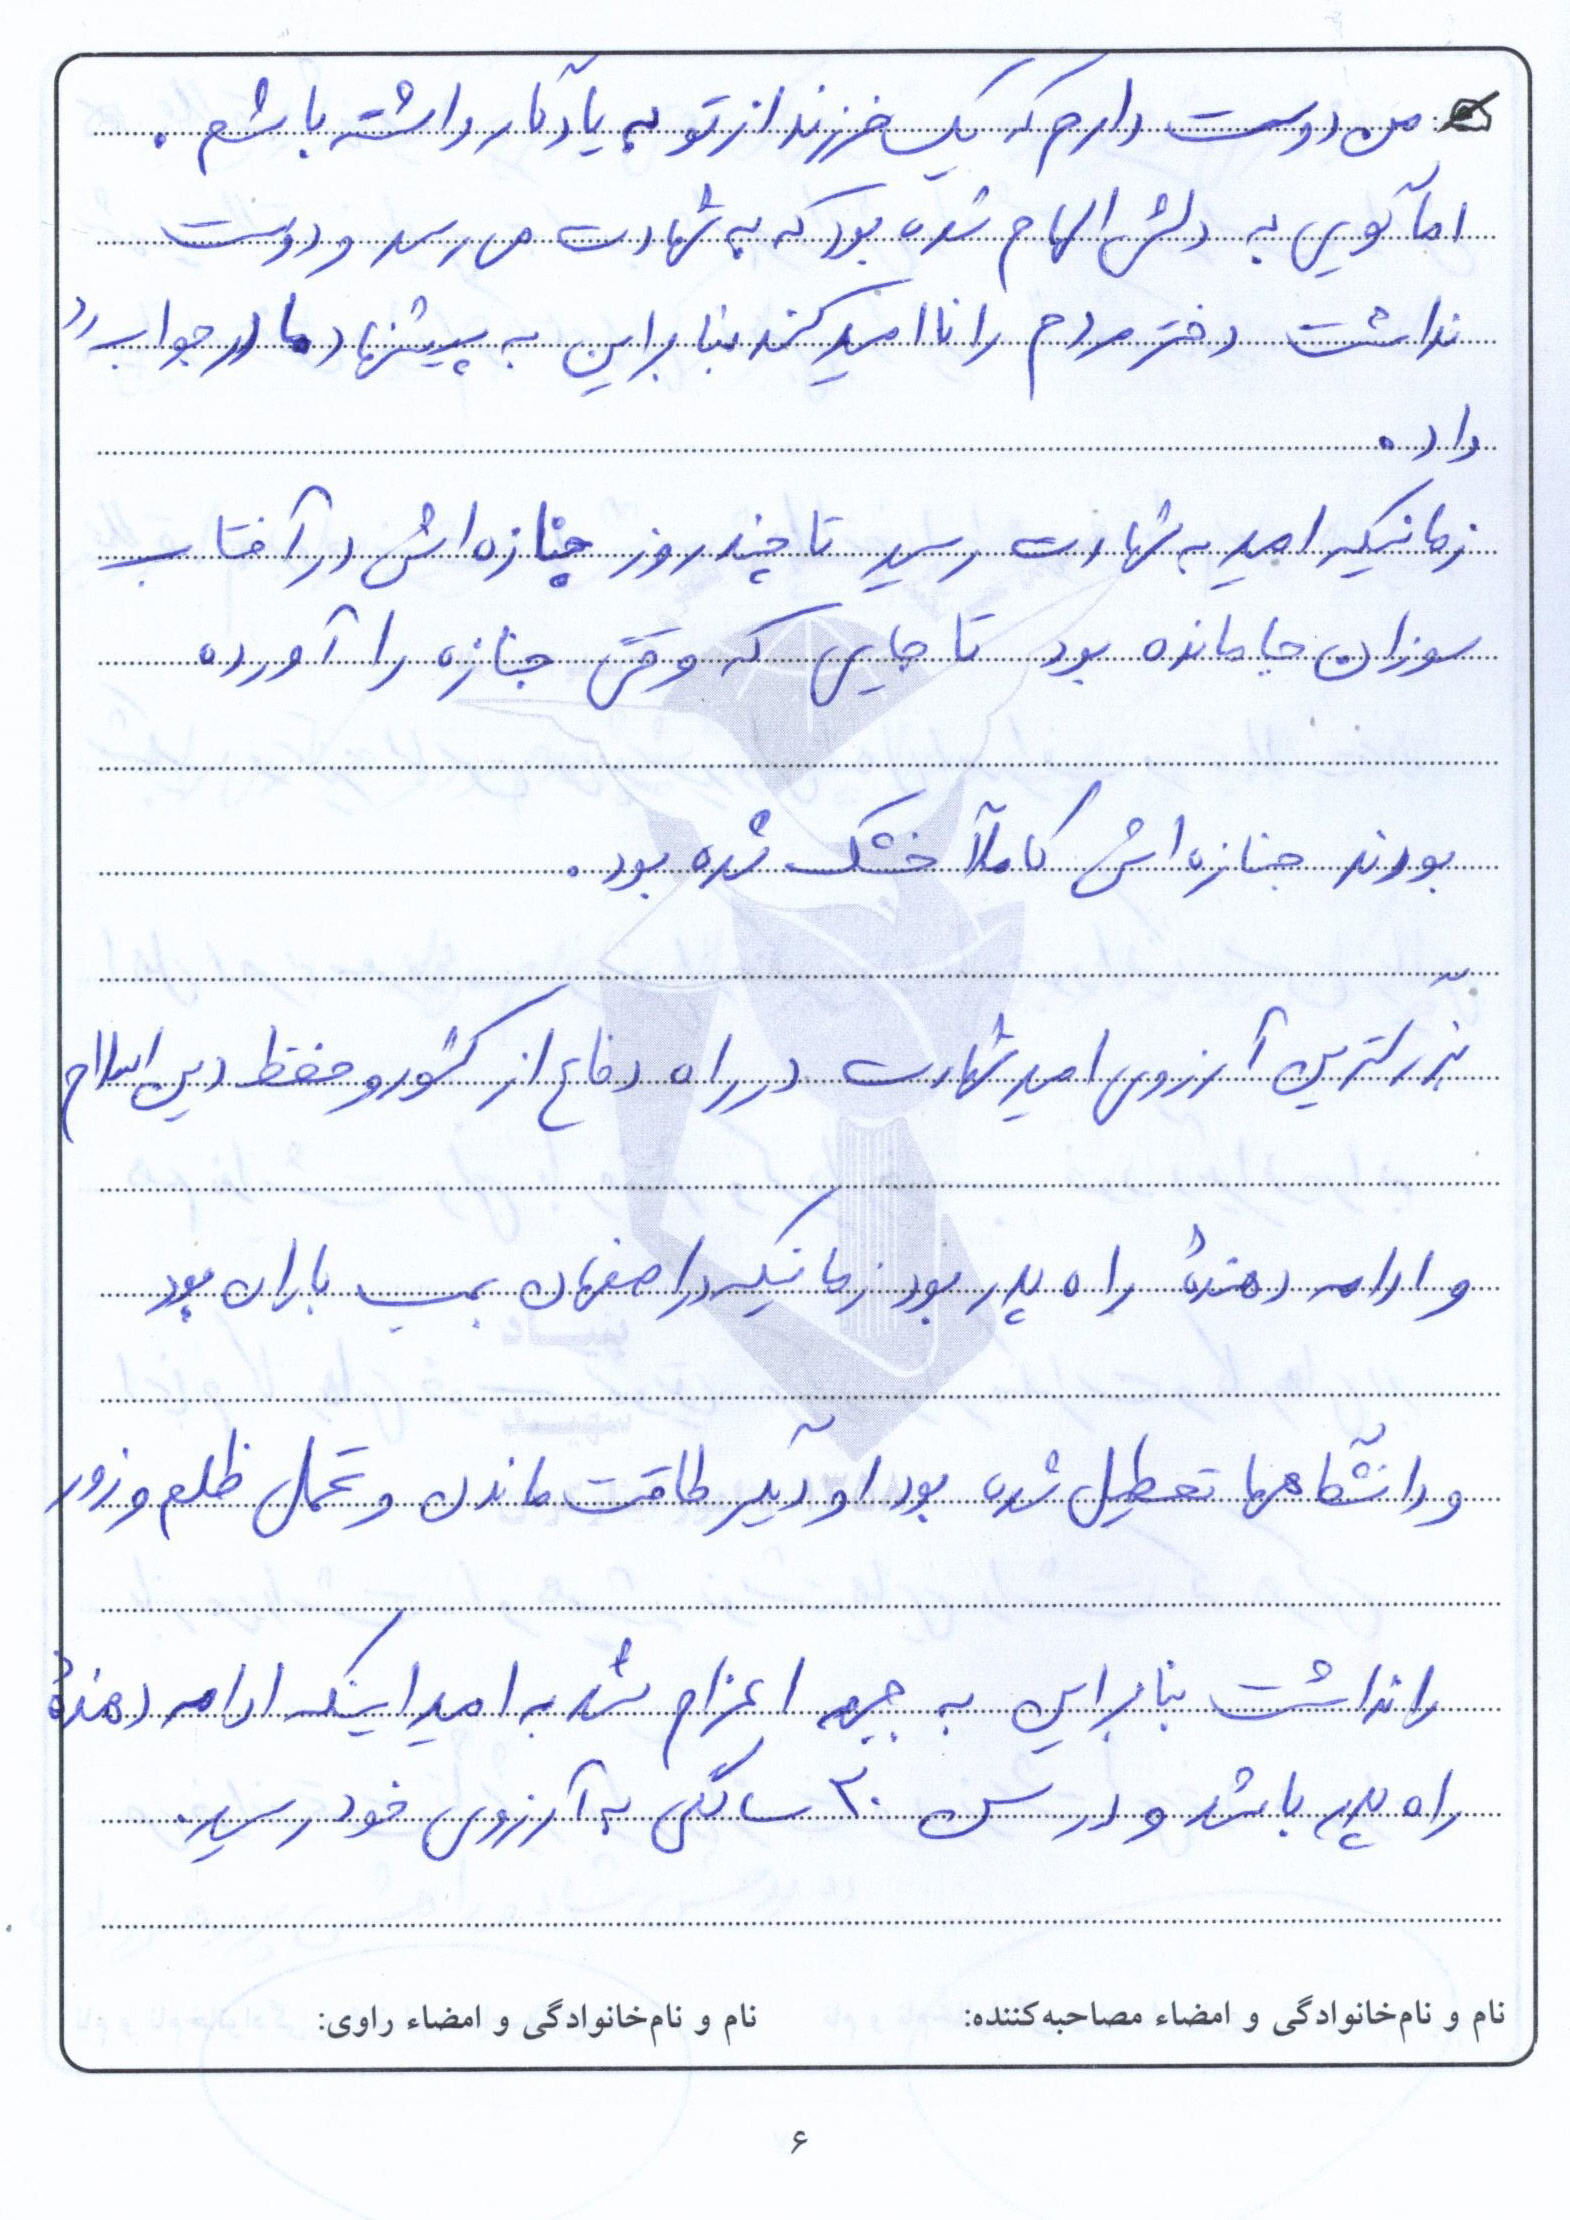 من دوست دارم که یک فرزند از تو به یادگار داشته باشم.
اما گویی به دلش الهام شده بود که به شهادت می رسد و دوست
نداشت دختر مردم را ناامید کند بنابراین به پیشنهاد مادر جواب رد
داد.
زمانیکه امید به شهادت رسید تا چند روز جنازه اش در آفتاب
سوزان جا مانده بود تا جایی که وقتی جنازه را آورده
بودند جنازه اش کاملاً خشک شده بود.
بزرگترین آرزوی امید شهادت در راه دفاع از کشور و حفظ دین اسلام
و ادامه دهندهٔ راه پدر بود زمانیکه در اصفهان بمب باران بود
و دانشگاهها تعطیل شده بود او دیگر طاقت ماندن و تحمل ظلم و زور
را نداشت بنابراین به جبهه اعزام شد به امید اینکه ادامه دهندهٔ
راه پدر باشد و در سن ۲۰ سالگی به آرزوی خود رسید.
نام و نام‌خانوادگی و امضاء مصاحبه‌کننده: نام و نام‌خانوادگی و امضاء راوی:
۶